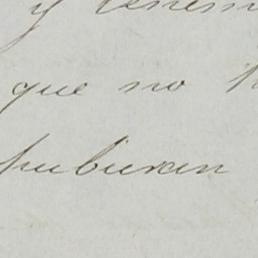 y tenem
que no
hubieran